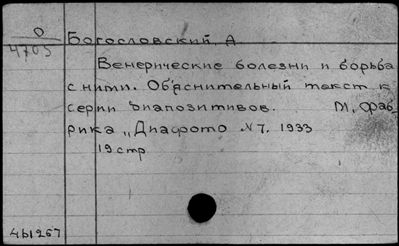 О
4705
Богословский, А
Венерические болезни и борьба
с ними. Объяснительный текст к
серии диапозитивов. М, фаб-
рика „Диафото №7, 1933
19 стр
461267